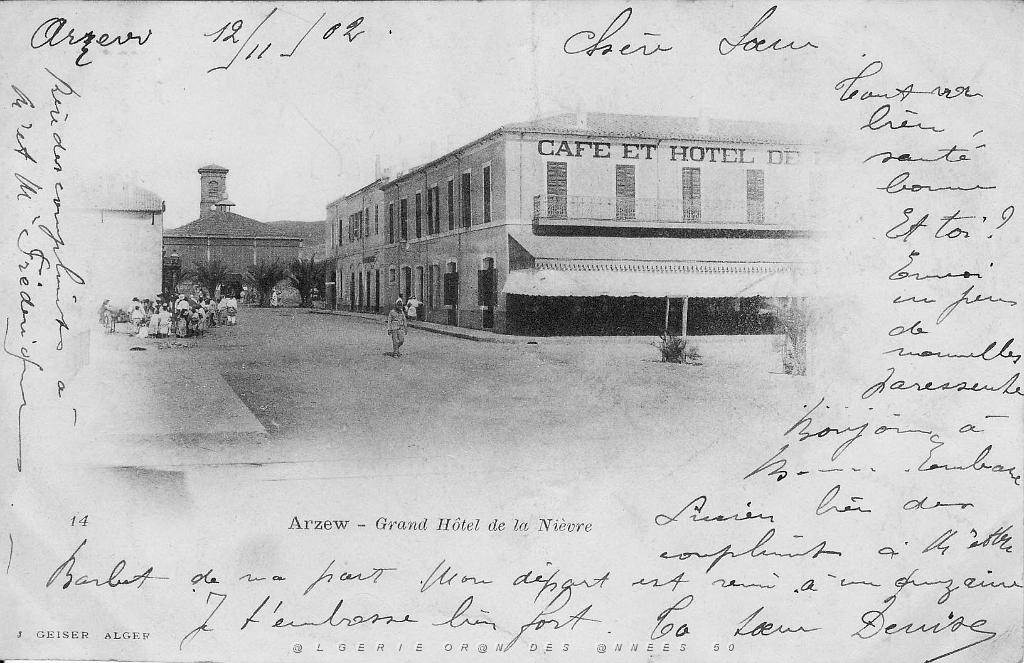 Arzew 12/11/02.
Chère Sœur
Tout va
bien,
santé
bonne
Et toi?
Envoi
un peu
de
nouvelles
paresseuse
Bonjour à
Embrasse
Lucien bien des
compliments à M et Me
Barbet de ma part Mon départ est remis à une quinzaine
Je t'embrasse bien fort. Ta Sœur Denise
bien des compliments à
Mr et M Frédérique
CAFE ET HOTEL DE
14
Arzew - Grand Hôtel de la Nièvre
J GEISER ALGER
@LGERIE OR@N DES @NNEES 50